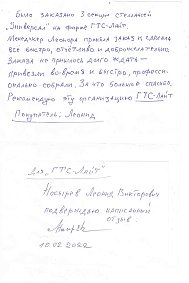 Было заказано 3 секции стеллажей
"Универсал" на фирме ГТС-Лайт.
Менеджер Леонора приняла заказ и сделала
всё быстро, отчётливо и доброжелательно.
Заказа не пришлось долго ждать –
привезли вовремя и быстро, професси-
онально собрали. За что большое спасибо.
Рекомендую эту организацию ГТС-Лайт
Покупатель: Леонид
Для "ГТС-Лайт"
Носырев Леонид Викторович
подтверждаю написанный
отзыв.
10.02.2022